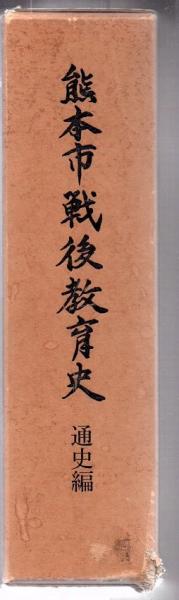 熊本市戦後教育史
通史編